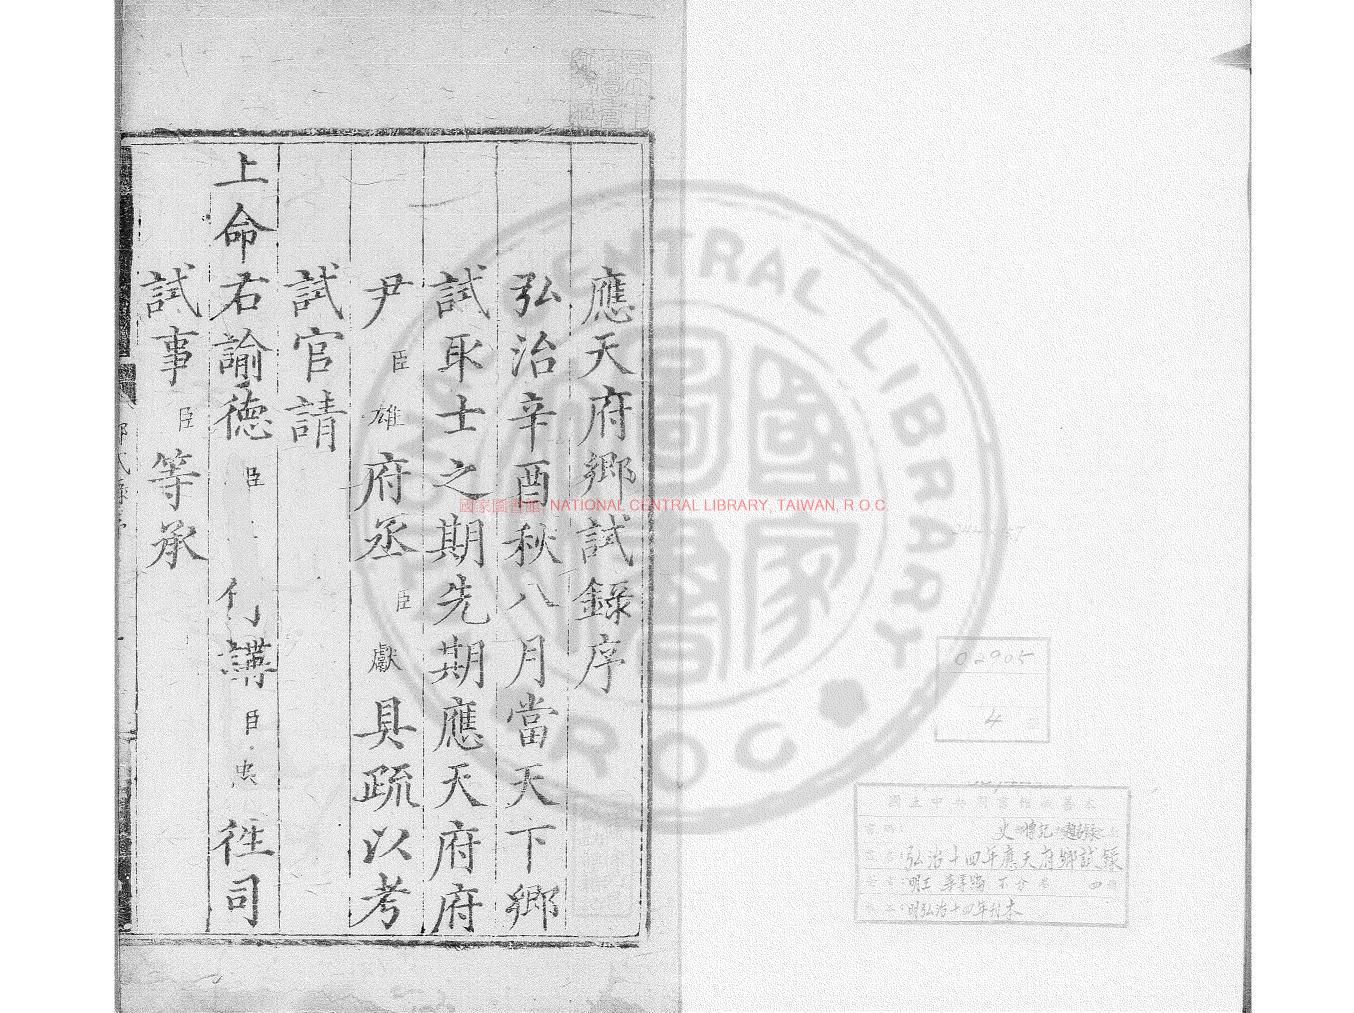 應天府鄉試錄序
弘治辛酉秋八月當天下鄉
試取士之期先期應天府府
尹臣雄府丞臣獻具疏以考
試官請
上命右諭德臣 侍講臣忠徃司
試事臣等承
國家圖書館, NATIONAL CENTRAL LIBRARY, TAIWAN, R.O.C
NATIONAL CENTRAL LIBRARY ROC
國家圖書
02905
4
弘治十四年應天府鄉試錄
明弘治十四年刊本